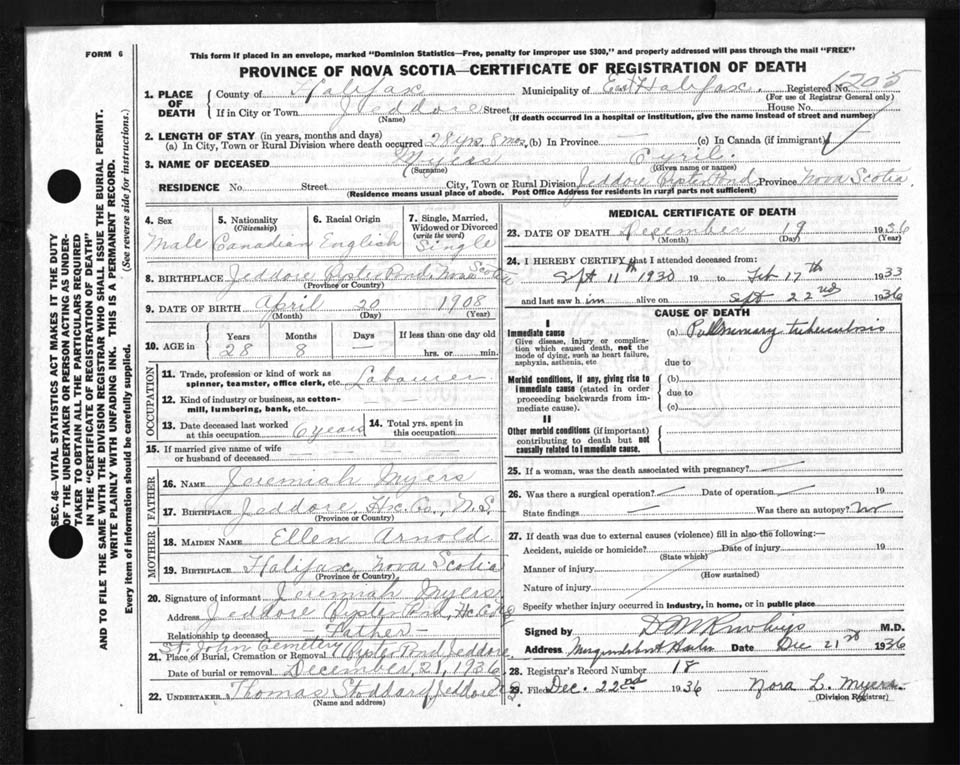 FORM 6
This form if placed in an envelope, marked "Dominion Statistics—Free, penalty for improper use $300," and properly addressed will pass through the mail "FREE"
PROVINCE OF NOVA SCOTIA—CERTIFICATE OF REGISTRATION OF DEATH
1. PLACE OF DEATH
County of Halifax Municipality of East Halifax. Registered No.
(For use of Registrar General only)
If in City or Town Jeddore Street House No.
(Name) (If death occurred in a hospital or institution, give the name instead of street and number)
2. LENGTH OF STAY (in years, months and days)
(a) In City, Town or Rural Division where death occurred 28 yrs. 8 mos. (b) In Province — (c) In Canada (if immigrant)
3. NAME OF DECEASED Myers Cyril.
(Surname) (Given name or names)
RESIDENCE No. Street City, Town or Rural Division Jeddore Oyster Pond, Province Nova Scotia.
(Residence means usual place of abode. Post Office Address for residents in rural parts not sufficient)
4. Sex
Male
5. Nationality (Citizenship)
Canadian
6. Racial Origin
English
7. Single, Married, Widowed or Divorced (write the word)
Single
8. BIRTHPLACE Jeddore Oyster Pond, Nova Scotia
(Province or Country)
9. DATE OF BIRTH April 20 1908
(Month) (Day) (Year)
10. AGE in
Years Months Days If less than one day
28 8 — hrs. or min.
OCCUPATION
11. Trade, profession or kind of work as spinner, teamster, office clerk, etc. Labourer
12. Kind of industry or business, as cotton-mill, lumbering, bank, etc. —
13. Date deceased last worked at this occupation 6 years
14. Total yrs. spent in this occupation
15. If married give name of wife or husband of deceased —
FATHER
16. NAME Jeremiah Myers
17. BIRTHPLACE Jeddore, Hx. Co., N.S.
(Province or Country)
MOTHER
18. MAIDEN NAME Ellen Arnold
19. BIRTHPLACE Halifax, Nova Scotia
(Province or Country)
20. Signature of informant Jeremiah Myers
Address Jeddore Oyster Pond, Hx. Co. N.S.
Relationship to deceased Father —
St. John Cemetery
21. Place of Burial, Cremation or Removal Oyster Pond, Jeddore
Date of burial or removal December 21, 1936
22. UNDERTAKER Thomas Stoddard, Jeddore
(Name and address)
MEDICAL CERTIFICATE OF DEATH
23. DATE OF DEATH December 19 1936
(Month) (Day) (Year)
24. I HEREBY CERTIFY that I attended deceased from:
Sept 11th 1930 19 to Feb 17th 1933
and last saw him alive on Sept 22nd 1936
CAUSE OF DEATH
I
Immediate cause
Give disease, injury or complication which caused death, not the mode of dying, such as heart failure, asphyxia, asthenia, etc
(a) Pulmonary tuberculosis
due to
Morbid conditions, if any, giving rise to immediate cause (stated in order proceeding backwards from immediate cause).
(b)
due to
(c)
II
Other morbid conditions (if important) contributing to death but not causally related to immediate cause.
25. If a woman, was the death associated with pregnancy? —
26. Was there a surgical operation? — Date of operation — 19
State findings — Was there an autopsy? no
27. If death was due to external causes (violence) fill in also the following:—
Accident, suicide or homicide? Date of injury 19
(State which)
Manner of injury
(How sustained)
Nature of injury
Specify whether injury occurred in industry, in home, or in public place
Signed by M.D.
Address Date Dec 21st 1936
28. Registrar's Record Number 18
29. Filed Dec. 22nd 1936 Nora L. Myers.
(Division Registrar)
SEC. 46—VITAL STATISTICS ACT MAKES IT THE DUTY
OF THE UNDERTAKER OR PERSON ACTING AS UNDERTAKER
TO OBTAIN ALL THE PARTICULARS REQUIRED
IN THE "CERTIFICATE OF REGISTRATION OF DEATH"
AND TO FILE THE SAME WITH THE DIVISION REGISTRAR WHO SHALL ISSUE THE BURIAL PERMIT.
WRITE PLAINLY WITH UNFADING INK. THIS IS A PERMANENT RECORD.
Every item of information should be carefully supplied. (See reverse side for instructions.)